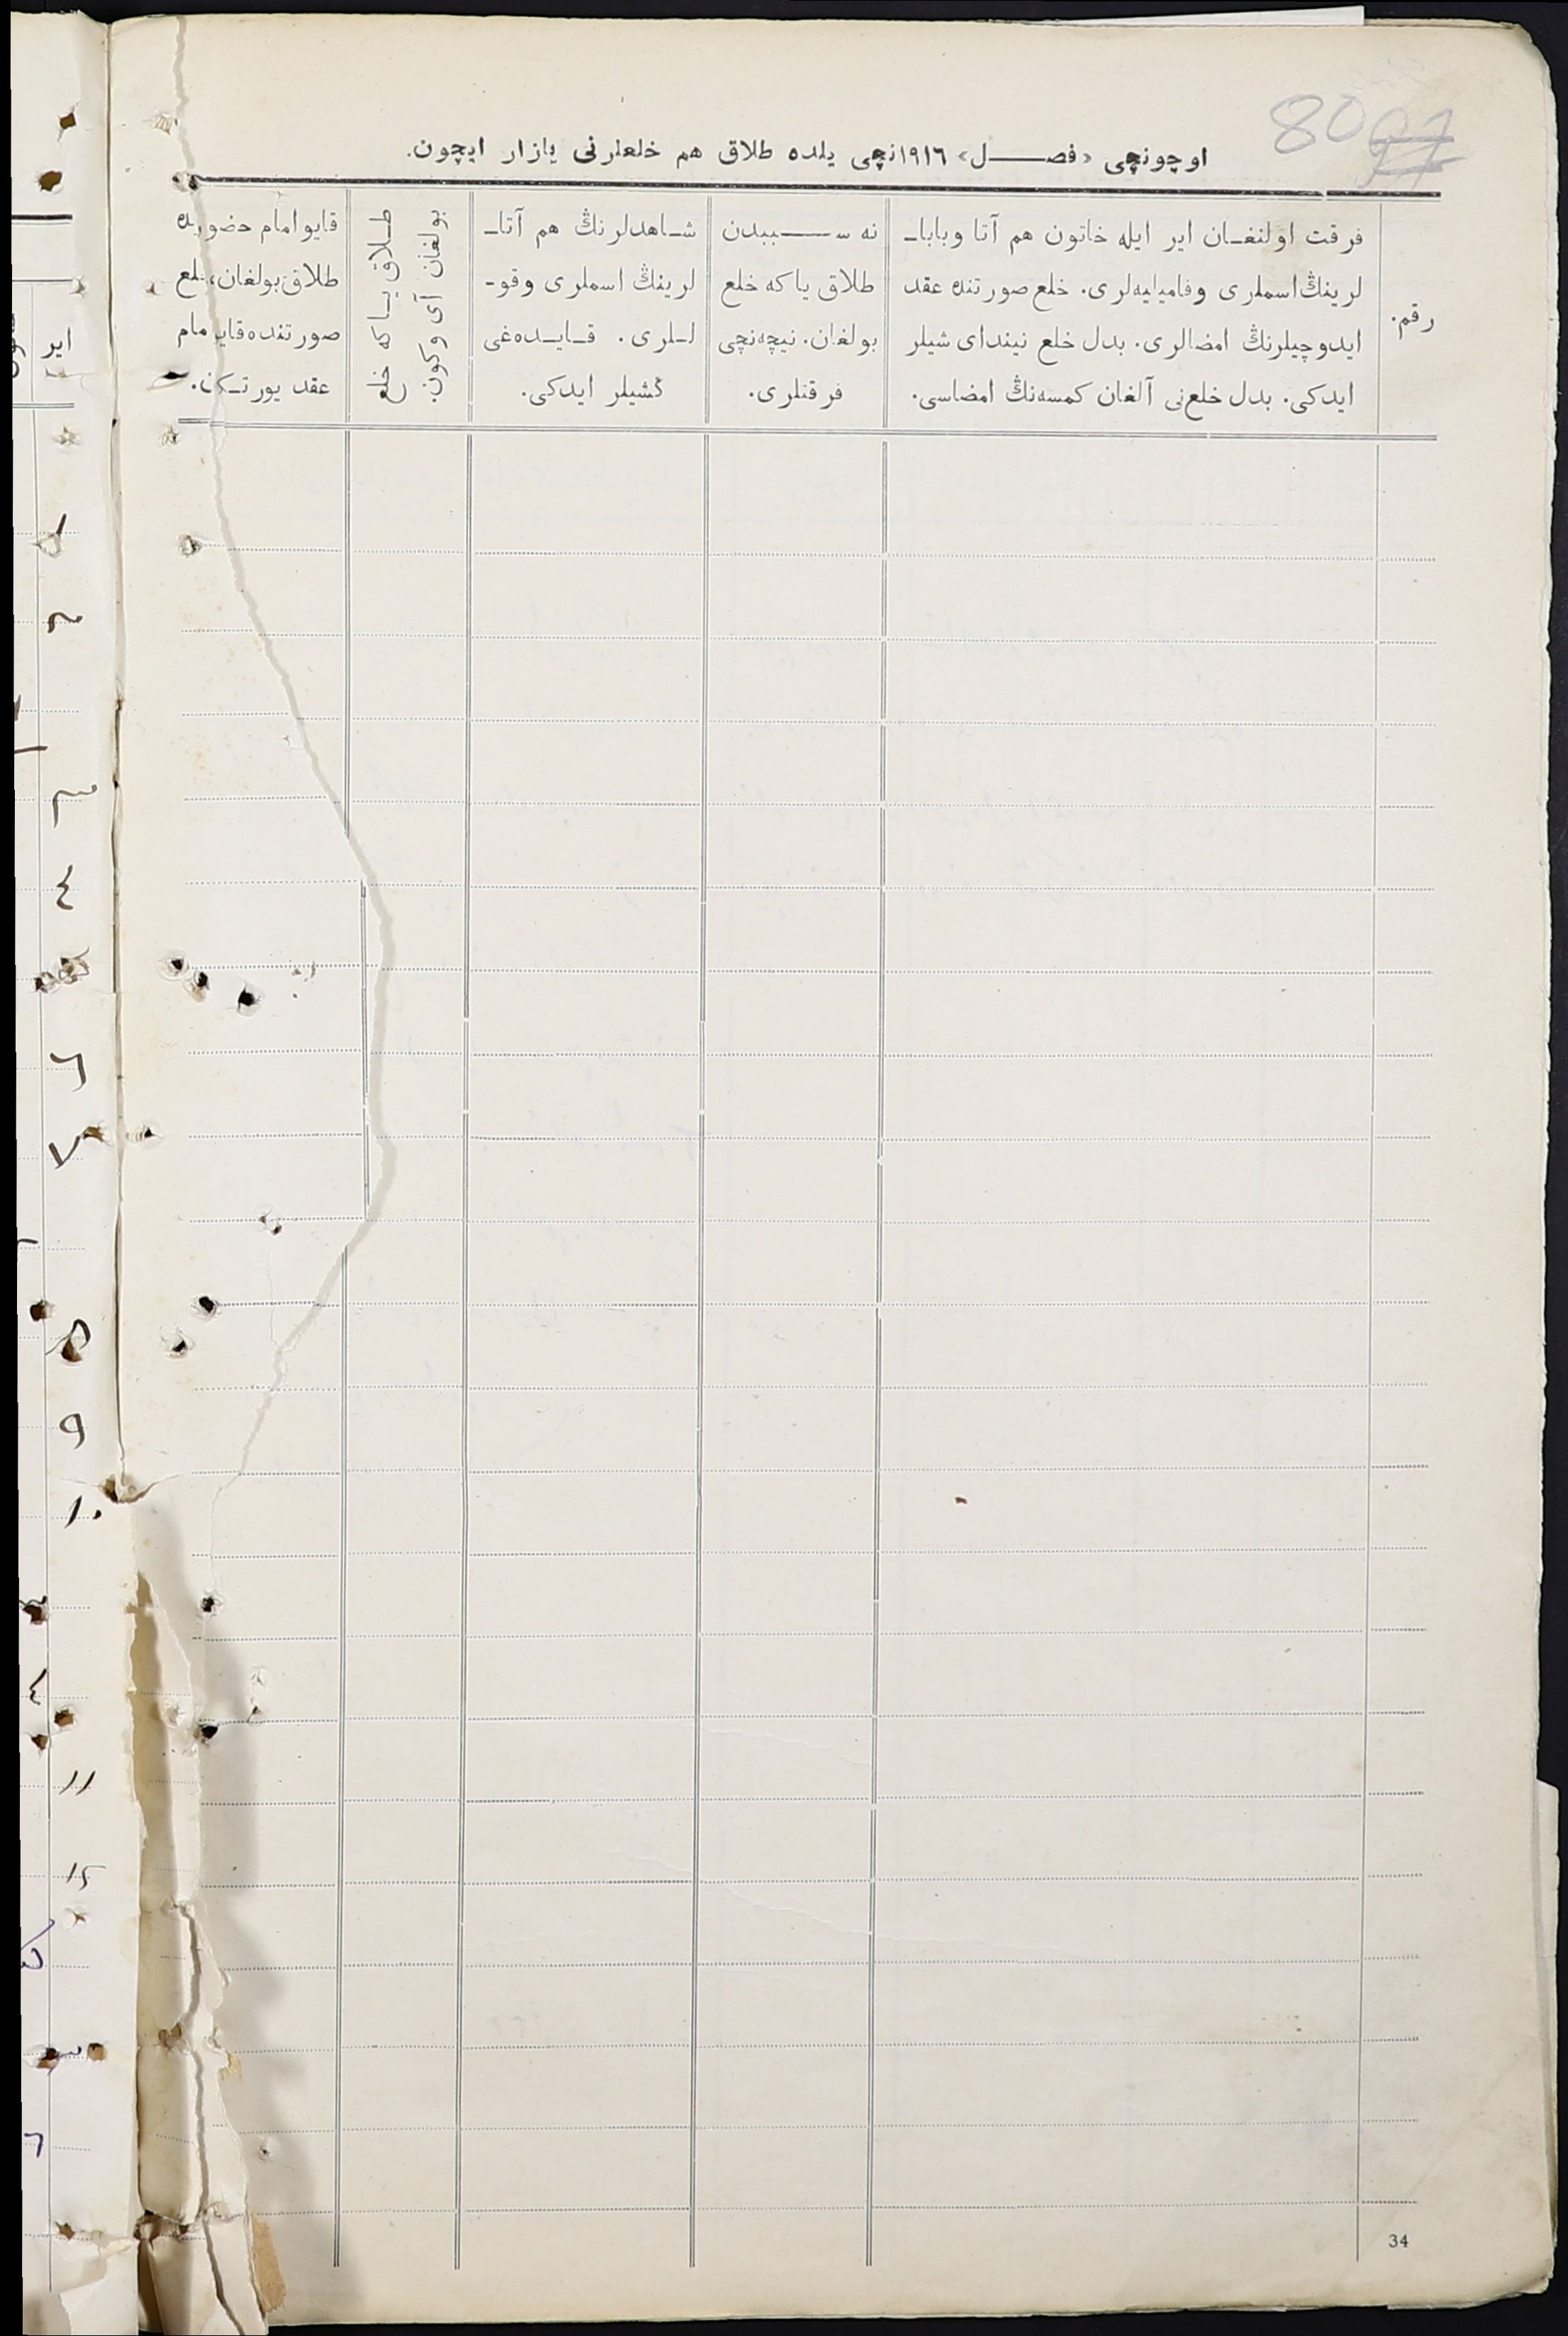 80 97
اوچونچی «فصل» ١٩١٦نچی یلده طلاق هم خلعلرنی یازار ایچون.
رقم.
فرقت اولنغان ایر ایله خاتون هم آتا وبابا-
لرینڭ اسملری وفامیلیه‌لری. خلع صورتنده عقد
ایدوچیلرنڭ امضالری. بدل خلع نیندای شیلر
ایدکی. بدل خلع‌نی آلغان کمسه‌نڭ امضاسی.
نه سببدن
طلاق یا که خلع
بولغان. نیچه‌نچی
فرقتلری.
شاهدلرنڭ هم آتا-
لرینڭ اسملری وقو-
للری. قایده‌غی
کشیلر ایدکی.
طلاق یا که خلع
بولغان آی وکون.
قایو امام حضورنده
طلاق بولغان، خلع
صورتنده قایو امام
عقد یورتکان.
34
ایر
٢
٣
٤
٦
٧
٩
١٠
١١
١٢